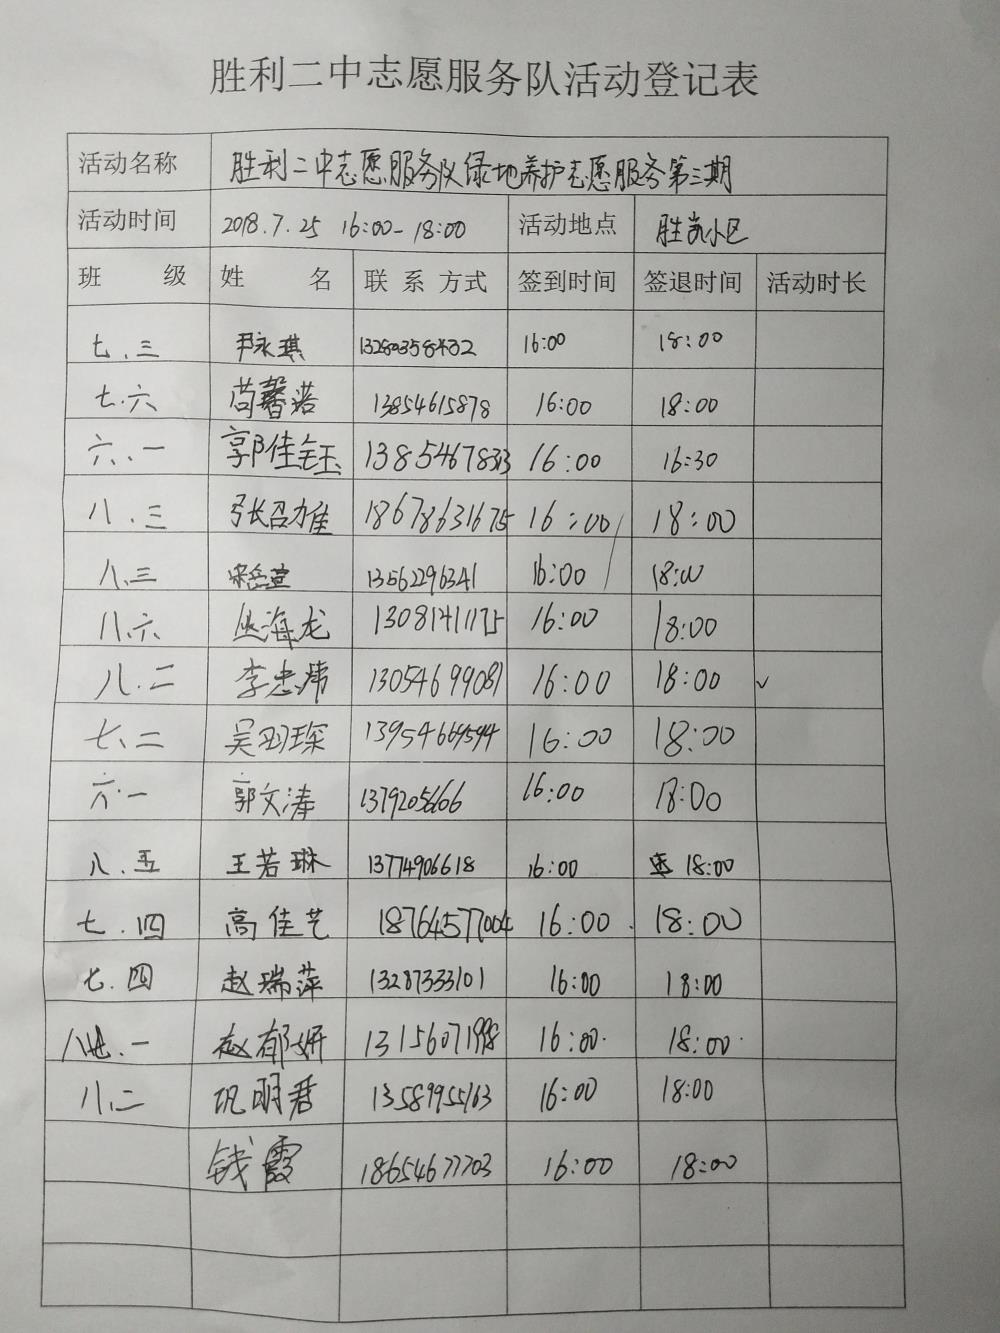 胜利二中志愿服务队活动登记表
活动名称 胜利二中志愿服务队绿地养护志愿服务第三期
活动时间 2018.7.25 16:00-18:00 活动地点 胜凯小区
班 级 姓 名 联 系 方式 签到时间 签退时间 活动时长
七.三 尹永琪 16:00 18:00
七.六 苘馨 13854615878 16:00 18:00
六.一 郭佳钰 13854678313 16:00 16:30
八.三 张召雄 18678631675 16:00 18:00
八.三 13562296341 16:00 18:00
八.六 丛海龙 13081411175 16:00 18:00
八.二 李忠炜 13054699081 16:00 18:00 ✓
七.二 吴玥琛 13954669594 16:00 18:00
六.一 郭文涛 1379205666 16:00 18:00
八.五 王若琳 13774906618 16:00 18:00
七.四 高佳艺 18764577004 16:00 18:00
七.四 赵瑞萍 13287333101 16:00 18:00
八.一 赵郁妍 13156071998 16:00 18:00
八.二 巩明君 13589955163 16:00 18:00
钱霞 18654677703 16:00 18:00